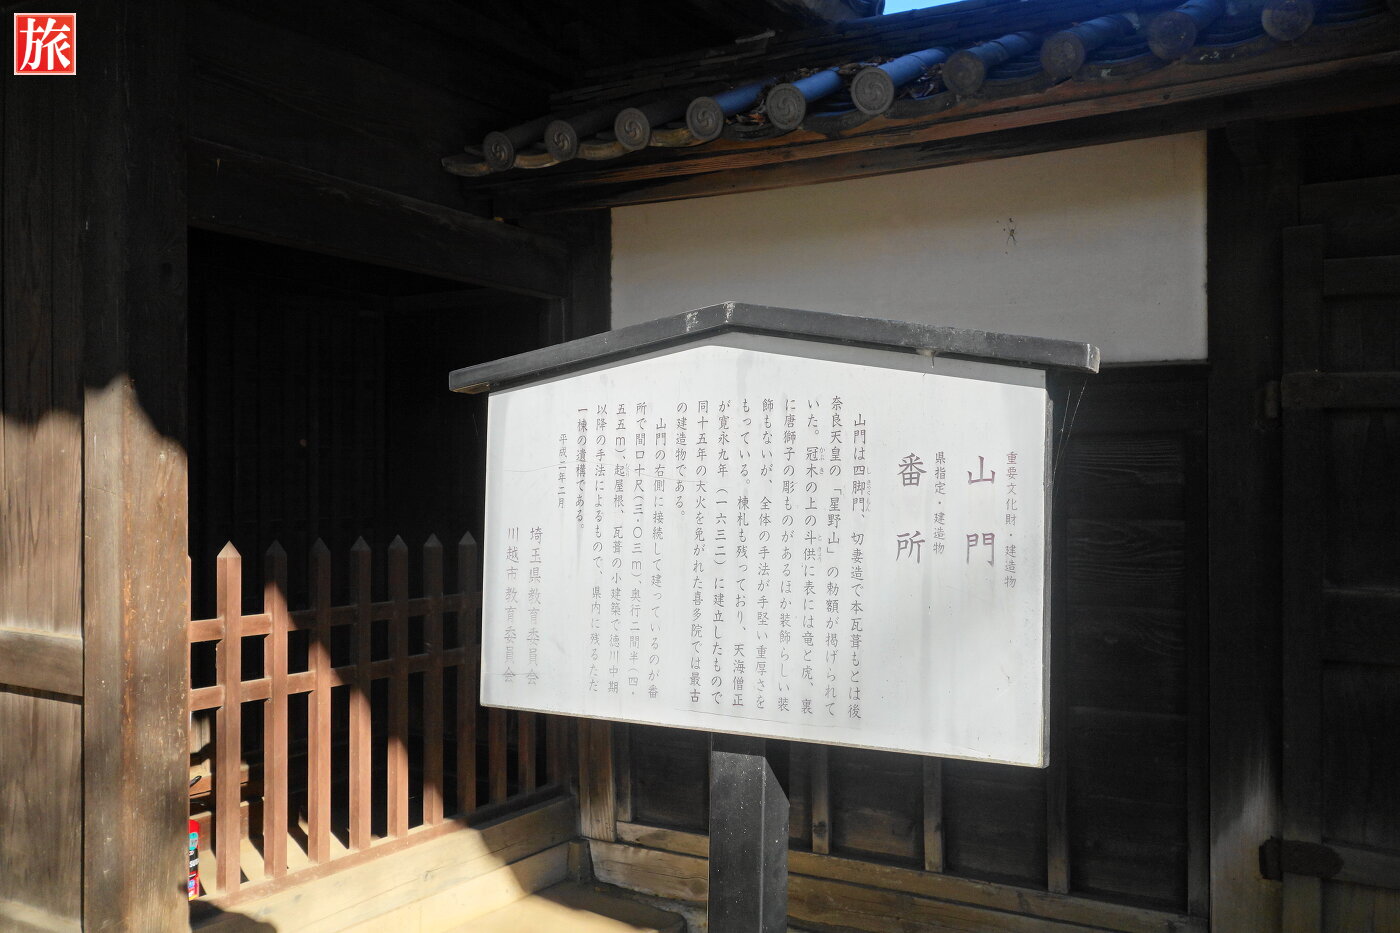 旅
重要文化財・建造物
山門
県指定・建造物
番所
山門は四脚門、切妻造で本瓦葺もとは後
奈良天皇の「星野山」の勅額が掲げられて
いた。冠木の上の斗供に表には竜と虎、裏
に唐獅子の彫ものがあるほか装飾らしい装
飾もないが、全体の手法が手堅い重厚さを
もっている。棟札も残っており、天海僧正
が寛永九年（一六三二）に建立したもので
同十五年の大火を免がれた喜多院では最古
の建造物である。
山門の右側に接続して建っているのが番
所で間口十尺（三・〇三ｍ）、奥行二間半（四・
五五ｍ）、起屋根、瓦葺の小建築で徳川中期
以降の手法によるもので、県内に残るただ
一棟の遺構である。
平成二年二月
埼玉県教育委員会
川越市教育委員会